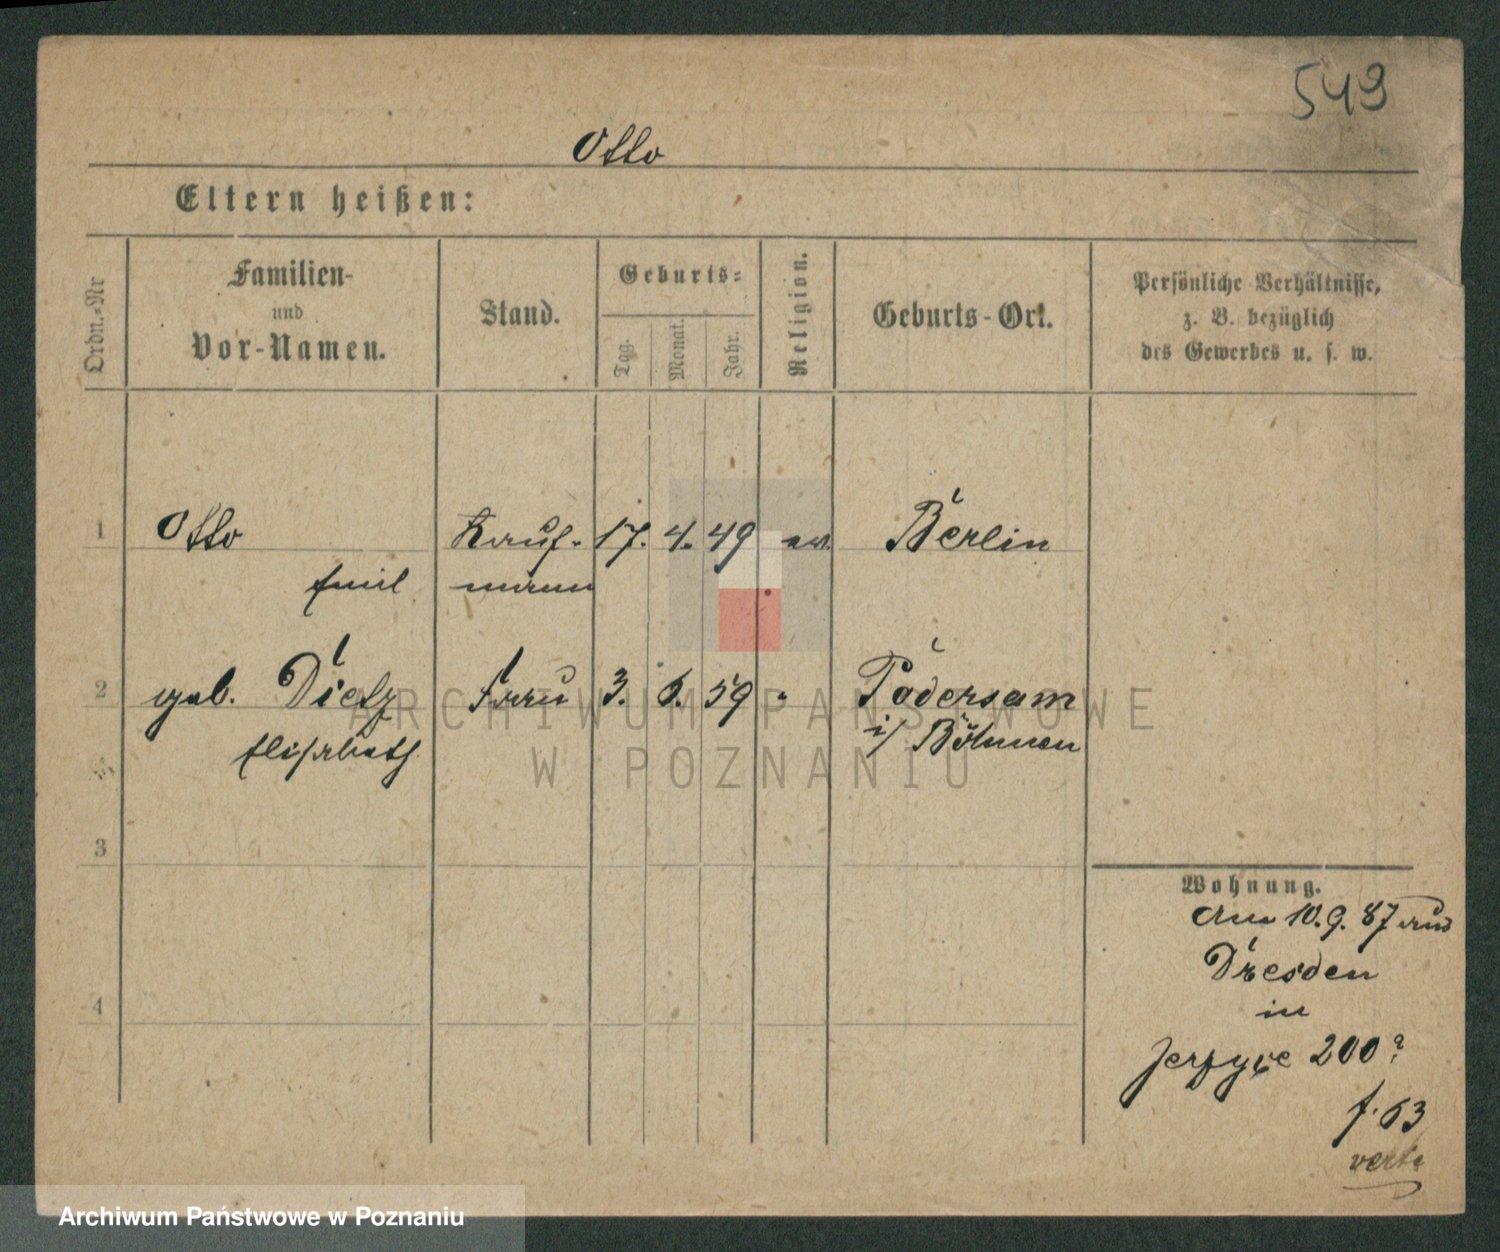 549
Otto
Eltern heißen:
Ordn.-Nr
Familien-
und
Vor-Namen.
Stand.
Geburts=
Tag.
Monat.
Jahr.
Religion.
Geburts-Ort.
Persönliche Verhältnisse,
z. B. bezüglich
des Gewerbes u. s. w.
1 Otto Kauf- 17. 4. 49 ev. Berlin
Emil mann
2 geb. Dietz Frau 3. 6. 59 " Podersam
Elisabeth i/ Böhmen
3
4
Wohnung.
Am 10. 9. 87 aus
Dresden
in
Jerzyce 200?
f. 63
verte
ARCHIWUM PAŃSTWOWE
W POZNANIU
Archiwum Państwowe w Poznaniu